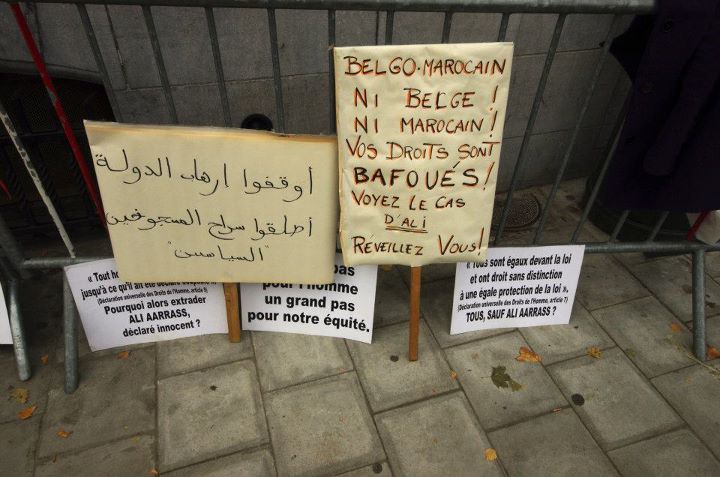 أوقفوا ارهاب الدولة
أطلقوا سراح المسجونين
"السياسيين"
BELGO-MAROCAIN
NI BELGE!
NI MAROCAIN!
VOS DROITS SONT
BAFOUÉS!
VOYEZ LE CAS
D'ALI
RÉVEILLEZ VOUS!
« Tout
jusqu'à ce qu'il ait été
(Déclaration universelle des Droits de l'Homme, article
Pourquoi alors extrader
ALI AARRASS,
déclaré innocent ?
pas
pour l'homme
un grand pas
pour notre équité.
« Tous sont égaux devant la loi
et ont droit sans distinction
à une égale protection de la loi ».
(Déclaration universelle des Droits de l'Homme, article 7)
TOUS, SAUF ALI AARRASS.